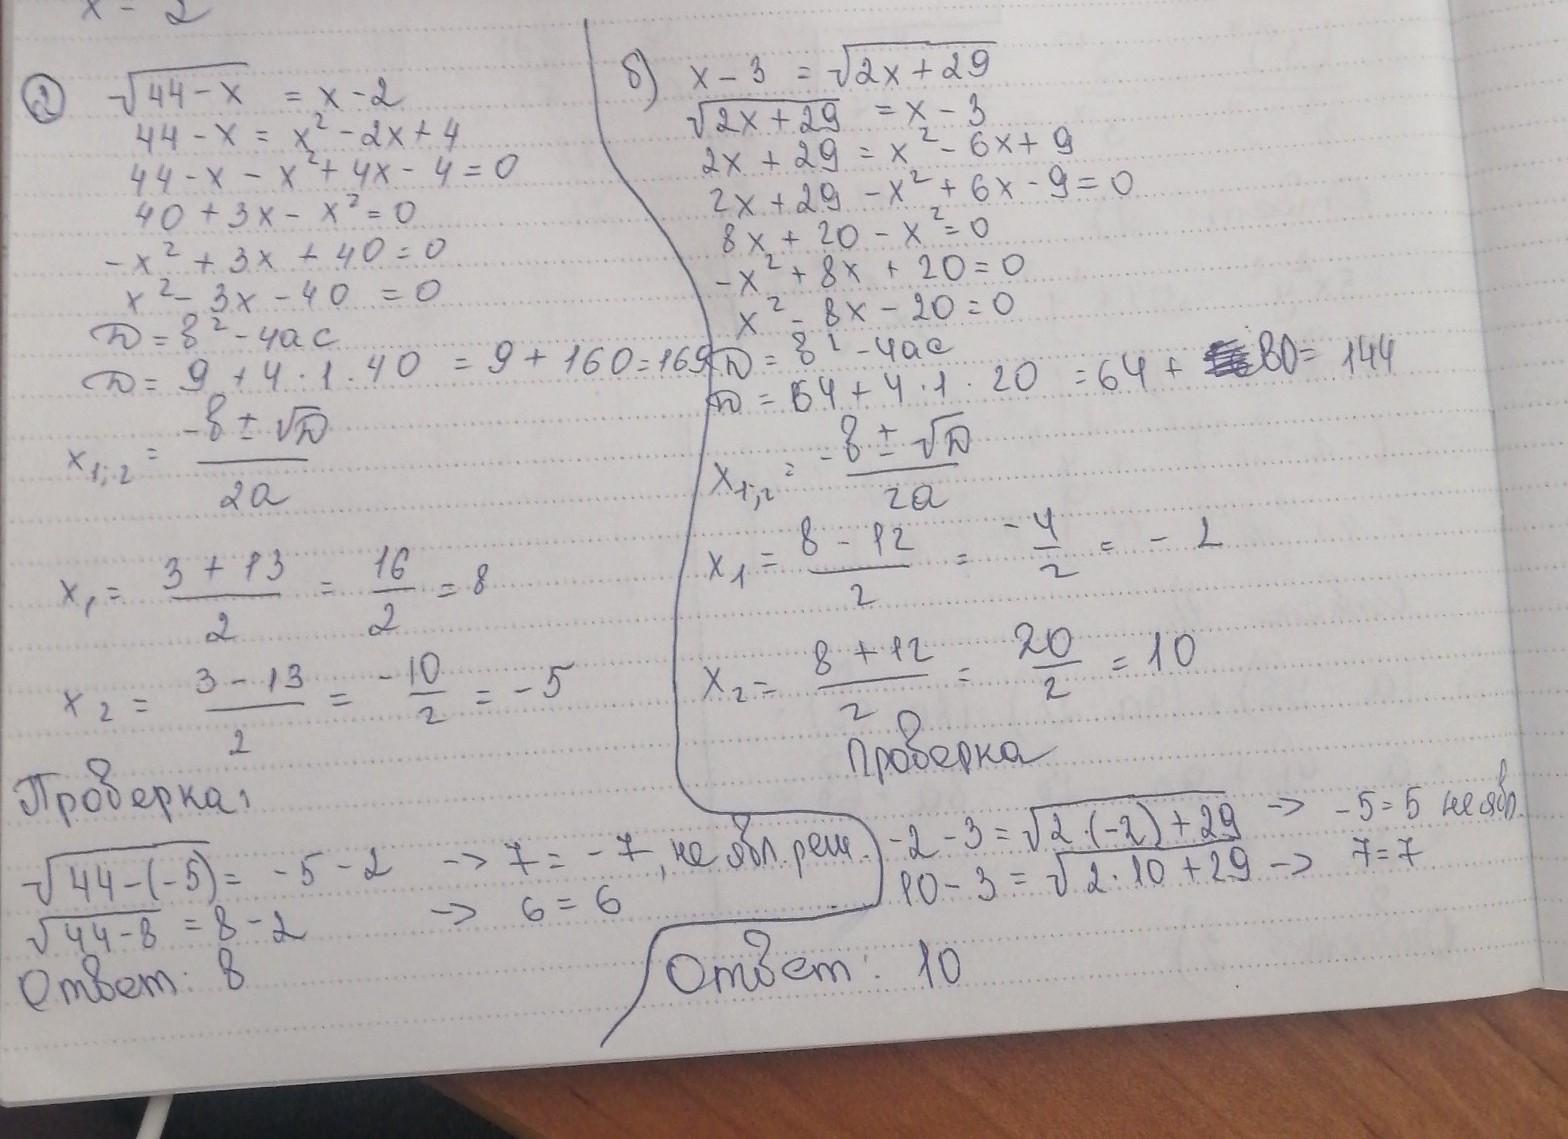 x = 2
② √(44-x) = x-2
44-x = x²-2x+4
44-x-x²+4x-4=0
40+3x-x²=0
-x²+3x+40=0
x²-3x-40=0
D=b²-4ac
D=9+4·1·40=9+160=169
x₁;₂ = (-b±√D)/(2a)
x₁ = (3+13)/2 = 16/2 = 8
x₂ = (3-13)/2 = -10/2 = -5
Проверка:
√(44-(-5)) = -5-2 → 7=-7, не явл. реш.
√(44-8) = 8-2 → 6=6
Ответ: 8
б) x-3 = √(2x+29)
√(2x+29) = x-3
2x+29 = x²-6x+9
2x+29-x²+6x-9=0
8x+20-x²=0
-x²+8x+20=0
x²-8x-20=0
D=b²-4ac
D=64+4·1·20=64+80=144
x₁;₂ = (-b±√D)/(2a)
x₁ = (8-12)/2 = -4/2 = -2
x₂ = (8+12)/2 = 20/2 = 10
Проверка
-2-3=√(2·(-2)+29) → -5=5 не явл.
10-3=√(2·10+29) → 7=7
Ответ: 10